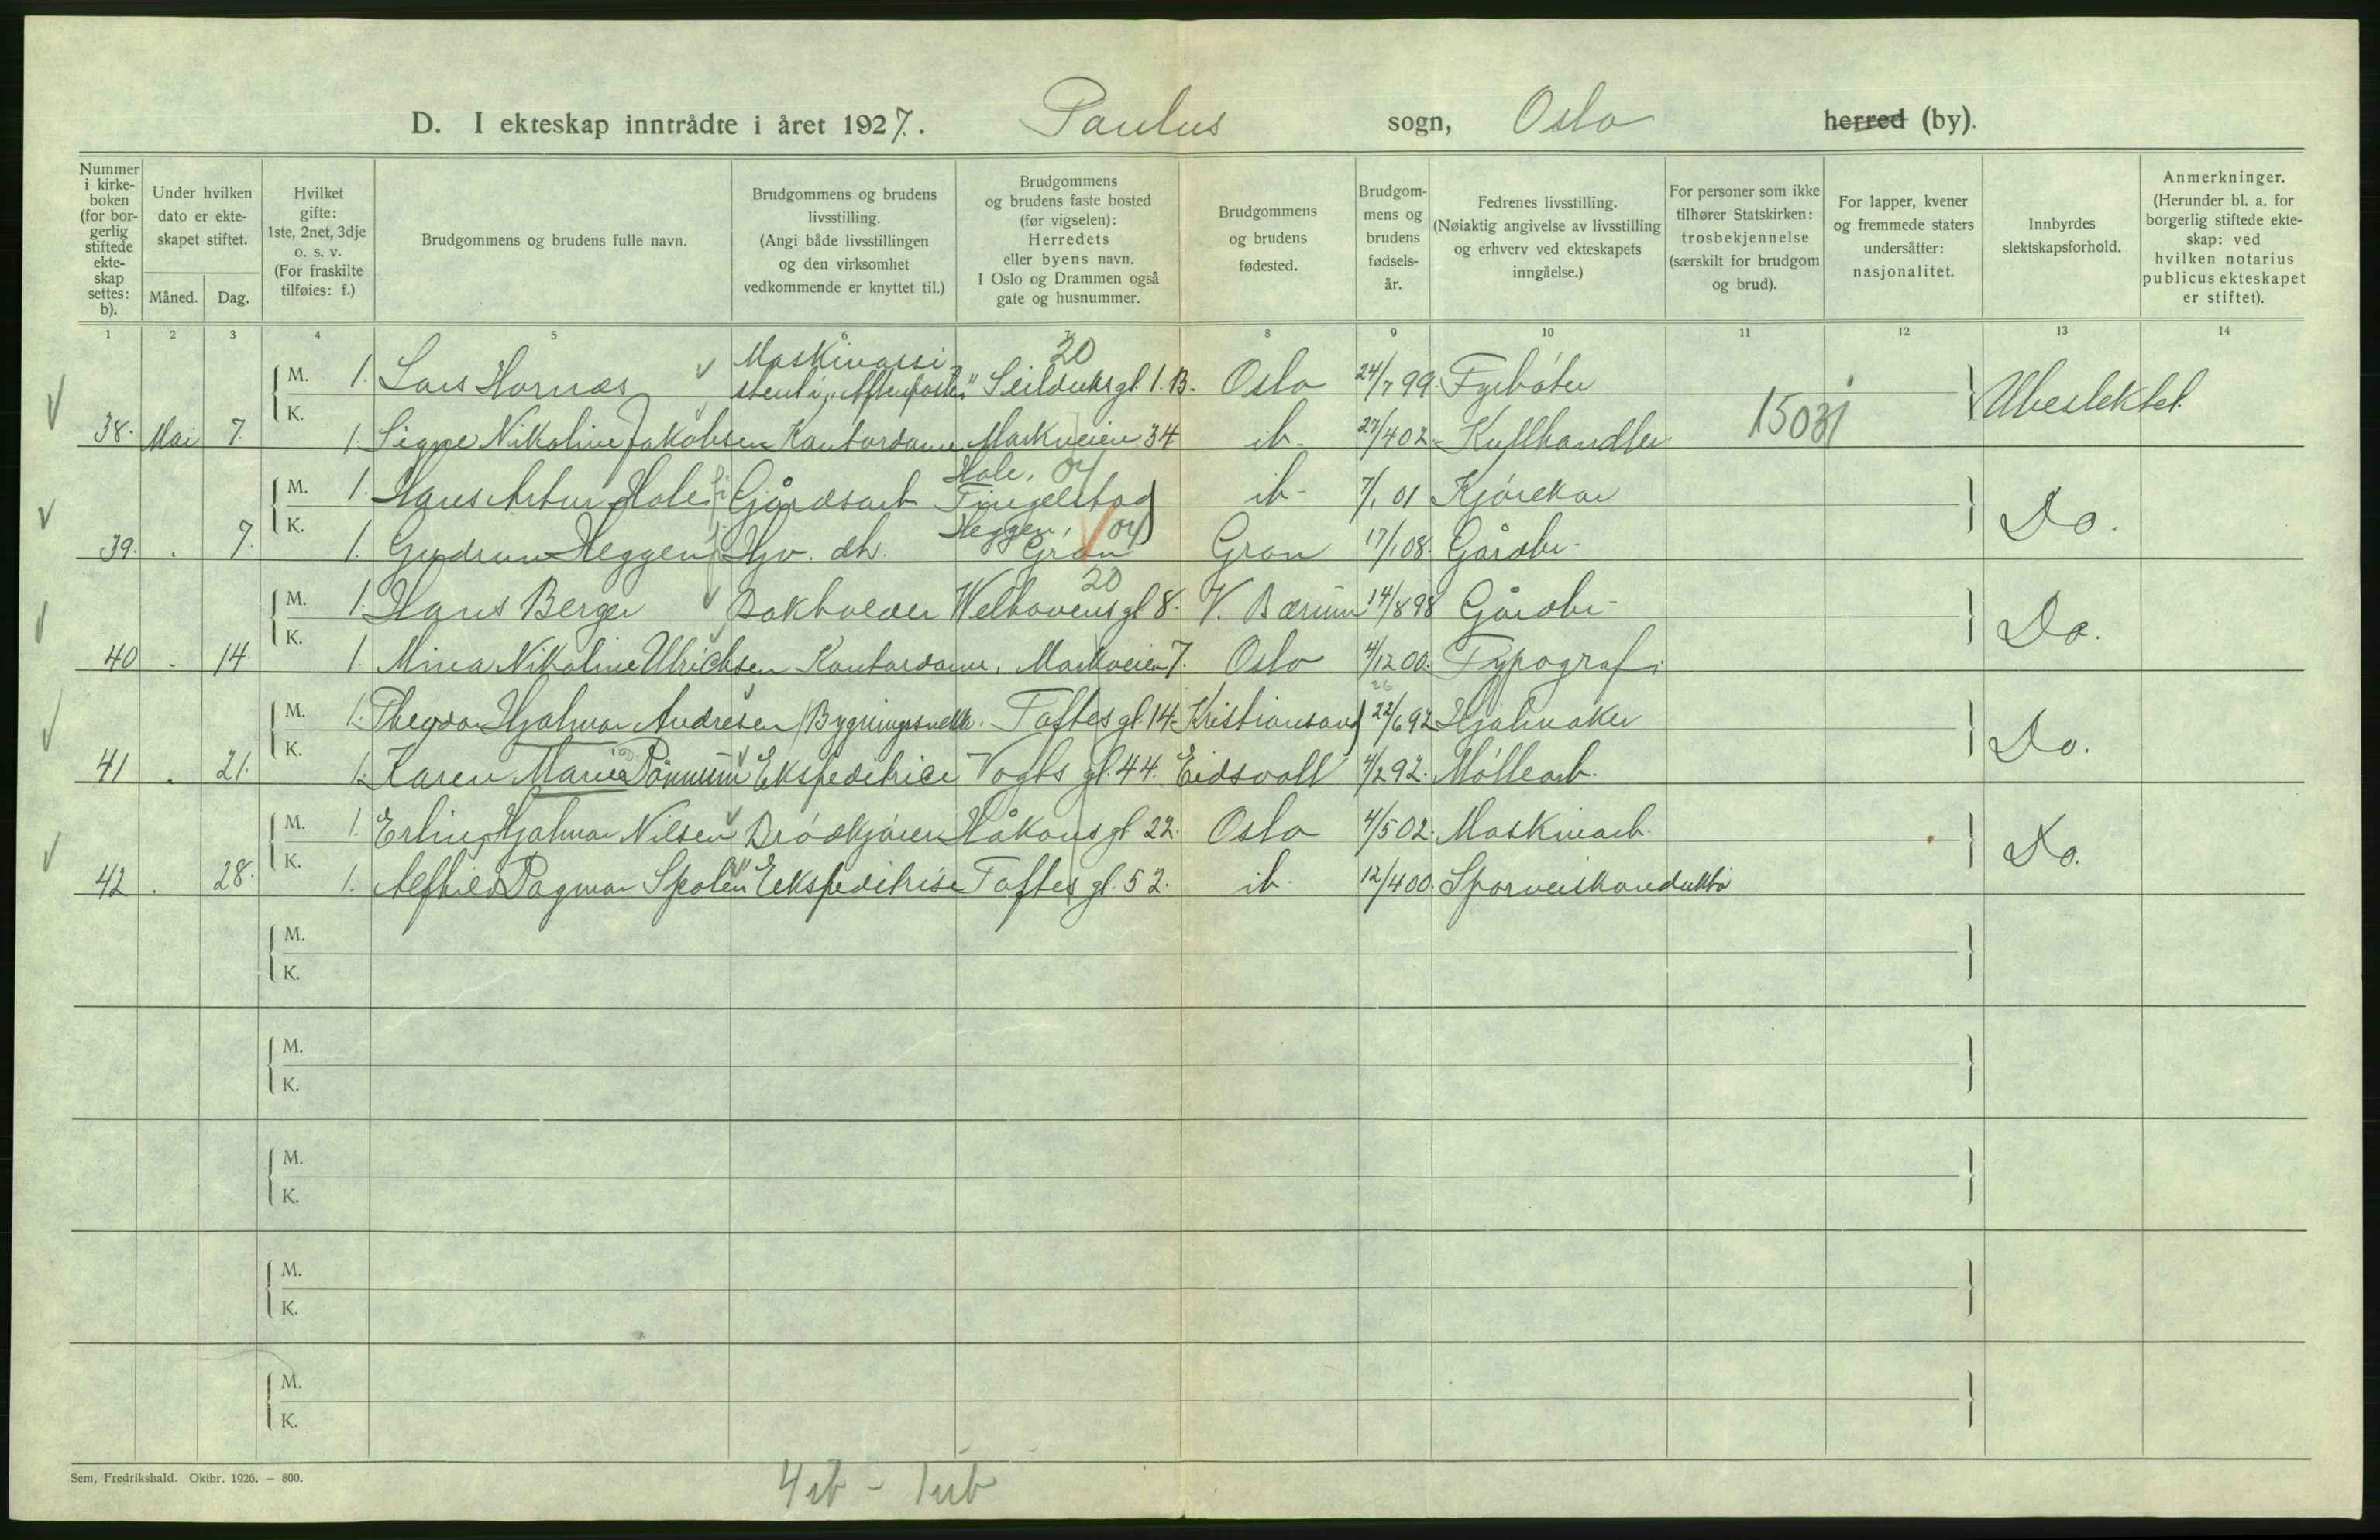 D. I ekteskap inntrådte i året 1927. Paulus sogn, Oslo herred (by).
Nummer i kirke-boken (for bor-gerlig stiftede ekte-skap settes: b).
Under hvilken dato er ekte-skapet stiftet.
Måned. Dag.
Hvilket gifte: 1ste, 2net, 3dje o. s. v. (For fraskilte tilføies: f.)
Brudgommens og brudens fulle navn.
Brudgommens og brudens livsstilling. (Angi både livsstillingen og den virksomhet vedkommende er knyttet til.)
Brudgommens og brudens faste bosted (før vigselen): Herredets eller byens navn. I Oslo og Drammen også gate og husnummer.
Brudgommens og brudens fødested.
Brudgom-mens og brudens fødsels-år.
Fedrenes livsstilling. (Nøiaktig angivelse av livsstilling og erhverv ved ekteskapets inngåelse.)
For personer som ikke tilhører Statskirken: trosbekjennelse (særskilt for brudgom og brud).
For lapper, kvener og fremmede staters undersåtter: nasjonalitet.
Innbyrdes slektskapsforhold.
Anmerkninger. (Herunder bl. a. for borgerlig stiftede ekte-skap: ved hvilken notarius publicus ekteskapet er stiftet).
1 2 3 4 5 6 7 8 9 10 11 12 13 14
M. 1. Lars Hornæs Maskinassistent i "Aftenposten" 20 Seilduksgt. 1. B. Oslo 24/7 99. Fyrbøter Ubeslektet.
38. Mai 7. K. 1. Signe Nikoline Jakobsen Kontordame Markveien 34 ib. 27/4 02. Kullhandler 15031
M. 1. Hans Artur Hole Gårdsarb Hole, 04 Tingelstad ib. 7/1 01 Kjørekar Do.
39. 7. K. 1. Gudrun Heggen Hjv. dtr. Heggen, 04 Gran Gran 17/1 08. Gårdbr.
M. 1. Hans Berger Bokholder 20 Welhavensgt 8. V. Bærum 14/8 98 Gårdbr. Do.
40 14. K. 1. Mina Nikoline Ulrichsen Kontordame. Markveien 7. Oslo 4/12 00. Typograf.
M. 1. Theodor Hjalmar Andresen Bygningssnekk. Toftes gt. 14. Kristiansand 26 22/6 92 Hjulmaker Do.
41 21. K. 1. Karen Marie Rønnum Ekspeditrice Vogts gt. 44. Eidsvoll 4/2 92. Møllearb.
M. 1. Erling Hjalmar Nilsen Brødkjører Håkonsgt. 22. Oslo 4/5 02. Maskinarb. Do.
42. 28. K. 1. Alfhild Dagmar Spolén Eekspeditrise Toftes gt. 52. ib. 12/4 00. Sporveiskonduktør
M.
K.
M.
K.
M.
K.
M.
K.
M.
K.
Sem, Fredrikshald. Oktbr. 1926. — 800.
4 ib - 1 ub